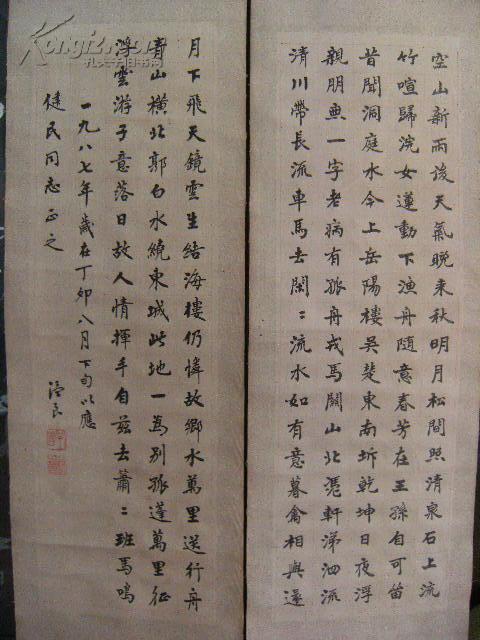 空山新雨後天氣晚来秋明月松間照清泉石上流
竹喧歸浣女蓮動下漁舟隨意春芳在王孫自可留
昔聞洞庭水今上岳陽樓吳楚東南坼乾坤日夜浮
親朋無一字老病有孤舟戎馬關山北憑軒涕泗流
清川帶長流車馬去閑〻流水如有意暮禽相與還
月下飛天鏡雲生結海樓仍憐故鄉水萬里送行舟
青山橫北郭白水繞東城此地一為別孤蓬萬里征
浮雲游子意落日故人情揮手自茲去蕭〻班馬鳴
一九八七年歲在丁卯八月下旬以應
健民同志正之
孔夫子旧书网